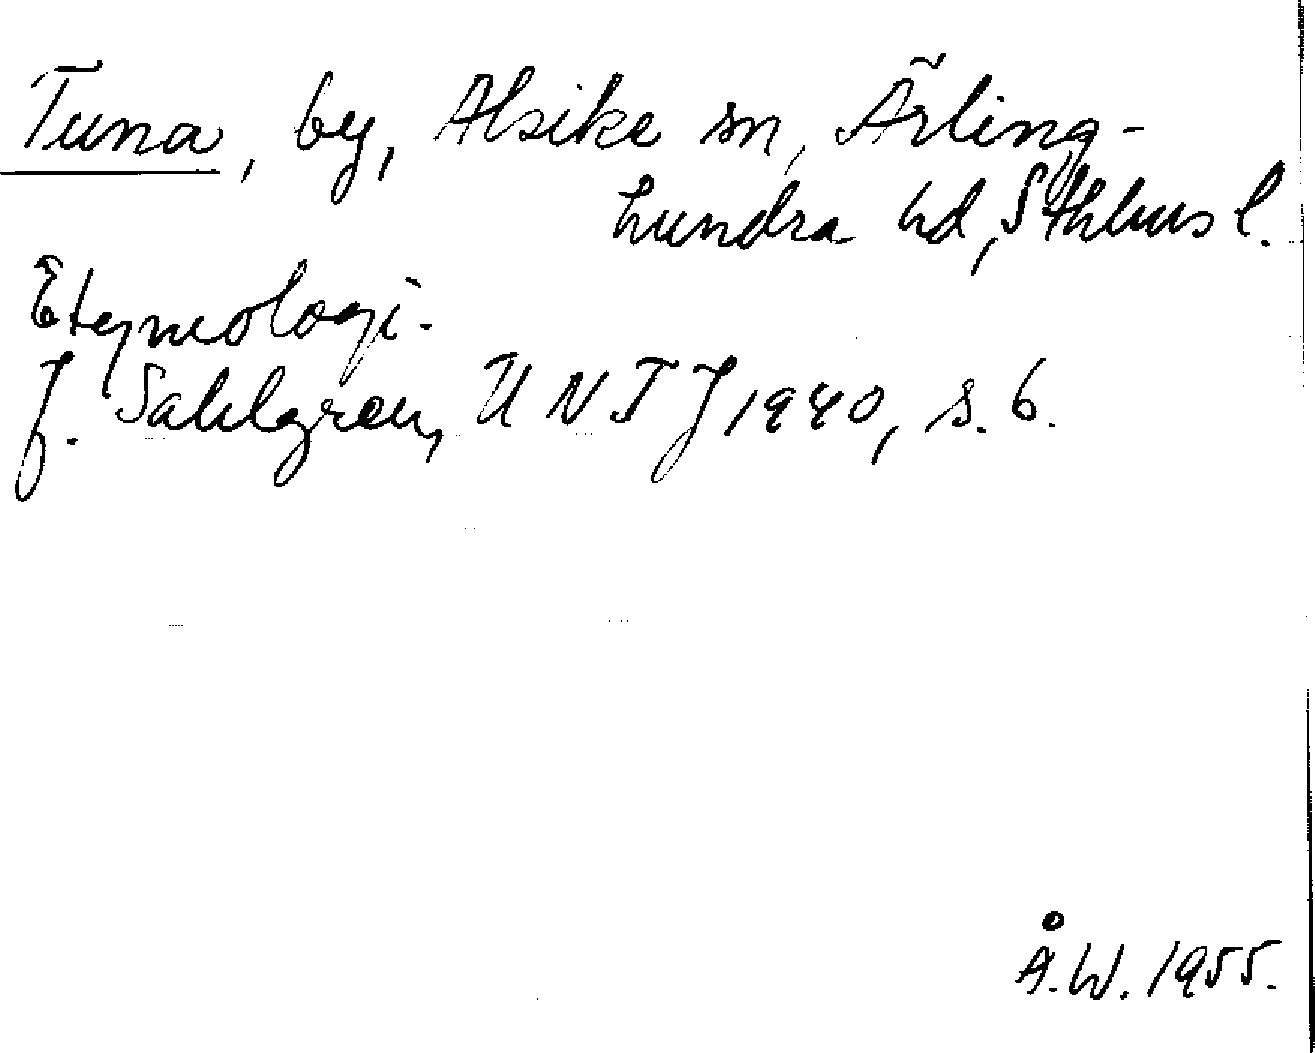 Tuna, by, Alsike sn, Ärling-
hundra hd, Sthlms l.
Etymologi.
J. Sahlgren, UNTJ 1940, s. 6.
Å.W. 1955.